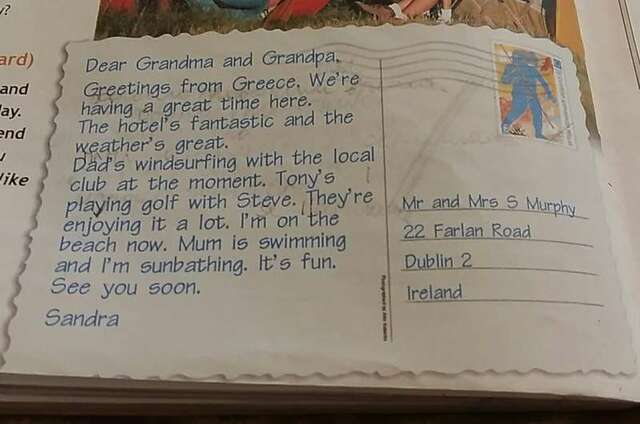 y?
ard)
and
ay.
end
u
like
Dear Grandma and Grandpa,
Greetings from Greece. We're
having a great time here.
The hotel's fantastic and the
weather's great.
Dad's windsurfing with the local
club at the moment. Tony's
playing golf with Steve. They're
enjoying it a lot. I'm on the
beach now. Mum is swimming
and I'm sunbathing. It's fun.
See you soon.
Sandra
Mr and Mrs S Murphy
22 Farlan Road
Dublin 2
Ireland